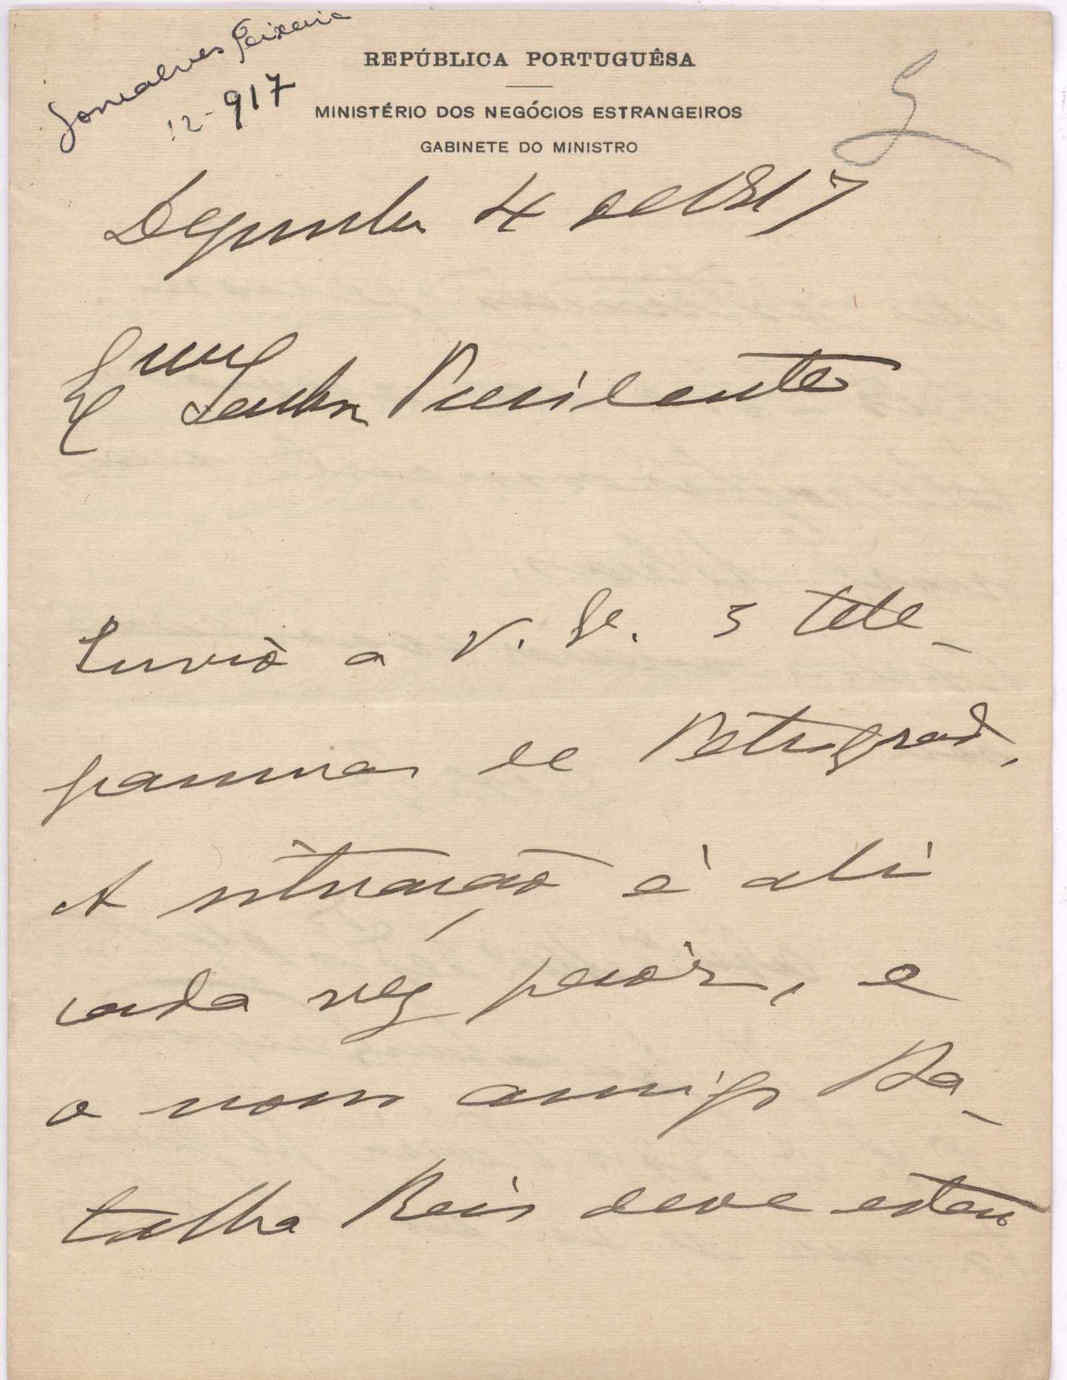 Gonçalves Teixeira
12-917
REPÚBLICA PORTUGUÊSA
MINISTÉRIO DOS NEGÓCIOS ESTRANGEIROS
GABINETE DO MINISTRO
Dezembro 4 de 1917
Exmo Senhor Presidente
Envio a V. Ex. 3 tele-
grammas de Petrograd.
A situação é ali
cada vez peior, e
o nosso amigo Ba-
talha Reis deve estar